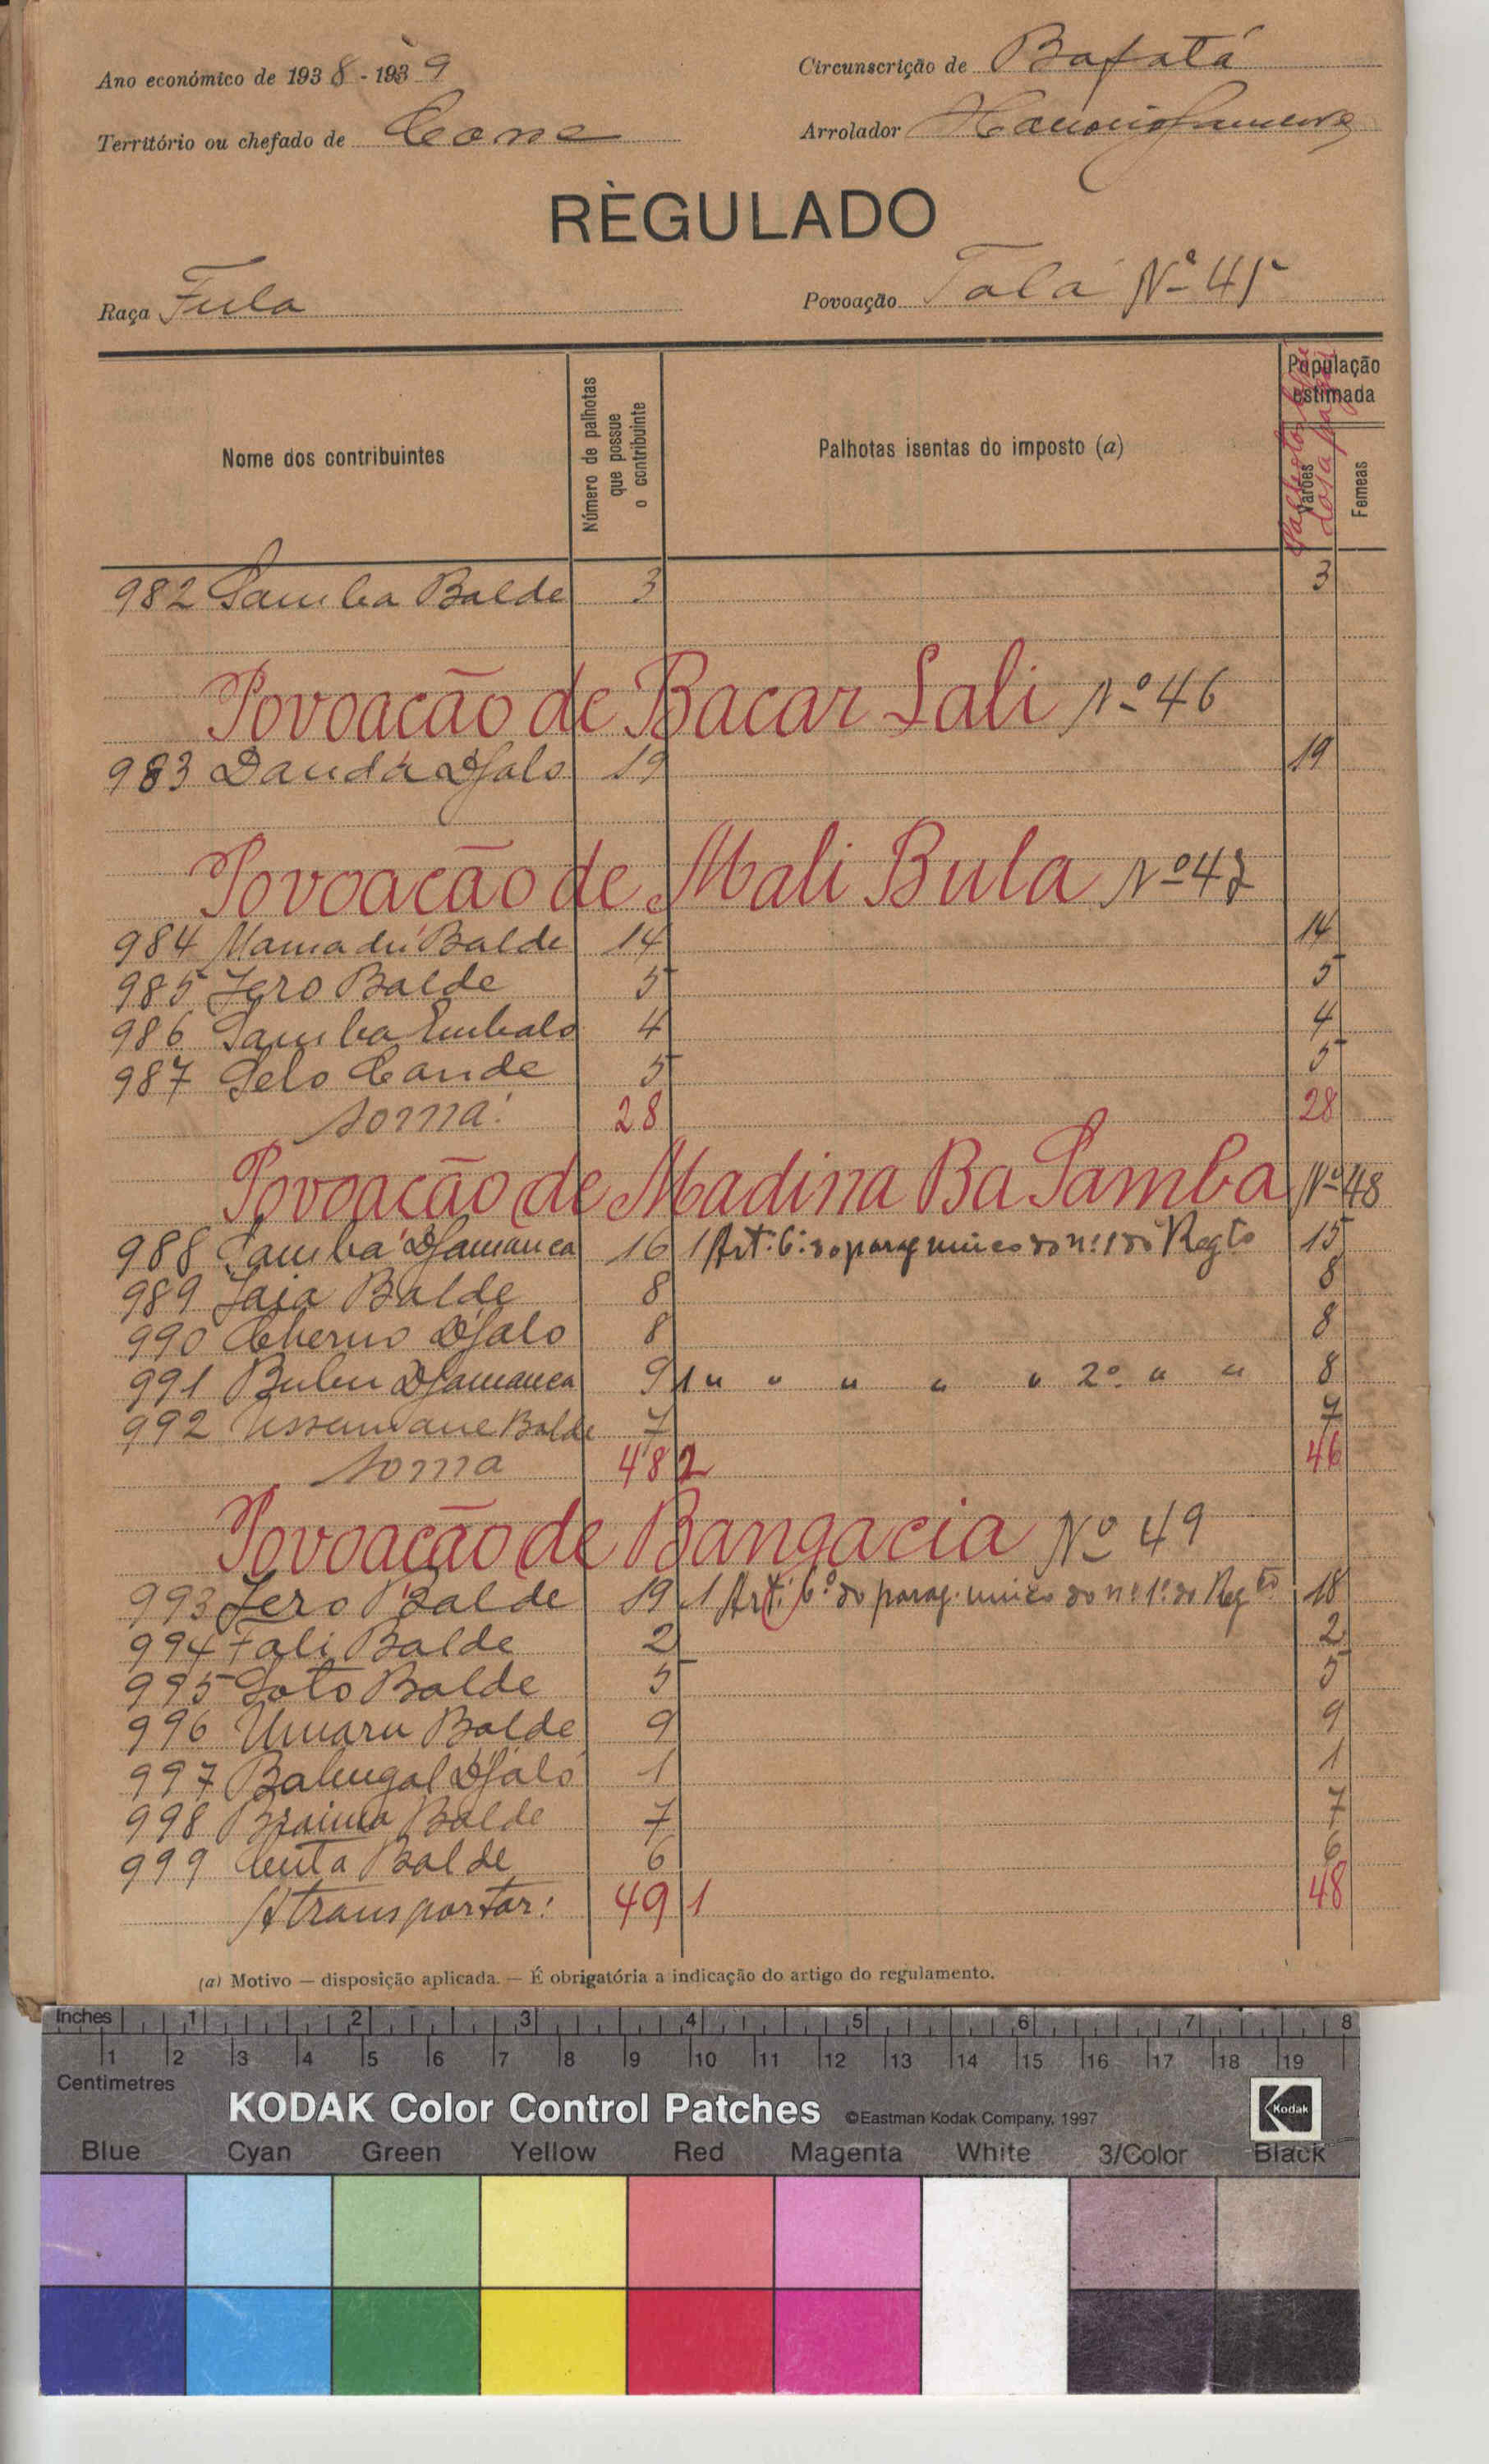 Ano económico de 1938-1939
Circunscrição de Bafatá
Território ou chefado de
Arrolador
RÈGULADO
Raça Fula
Povoação Talá Nº 45
Nome dos contribuintes
Número de palhotas que possue o contribuinte
Palhotas isentas do imposto (a)
População estimada
Varões
Femeas
982 Samba Balde 3 3
Povoação de Bacar Sali Nº 46
983 Daudá Djaló 19 19
Povoação de Mali Bula Nº 47
984 Mamadú Balde 14 14
985 Jero Balde 5 5
986 Samba Embaló 4 4
987 Selo Cande 5 5
Soma: 28 28
Povoação de Madina Ba Samba Nº 48
988 Samba Djamanca 16 1 Art. 6º do parag unico do nº 1 do Regto 15
989 Jaia Balde 8 8
990 Cherno Djaló 8 8
991 Bubu Djamanca 9 1 " " " " " 2º " " 8
992 Ussumane Balde 7 7
Soma 48 2 46
Povoação de Bangacia Nº 49
993 Jero Balde 19 1 Art. 6º do parag. unico do nº 1º do Regto 18
994 Fali Balde 2 2
995 Soto Balde 5 5
996 Umaru Balde 9 9
997 Djaló 1 1
998 Braima Balde 7 7
999 Balde 6 6
A transportar: 49 1 48
(a) Motivo — disposição aplicada. — É obrigatória a indicação do artigo do regulamento.
Inches 1 2 3 4 5 6 7 8
1 2 3 4 5 6 7 8 9 10 11 12 13 14 15 16 17 18 19
Centimetres
KODAK Color Control Patches ©Eastman Kodak Company, 1997 Kodak
Blue Cyan Green Yellow Red Magenta White 3/Color Black